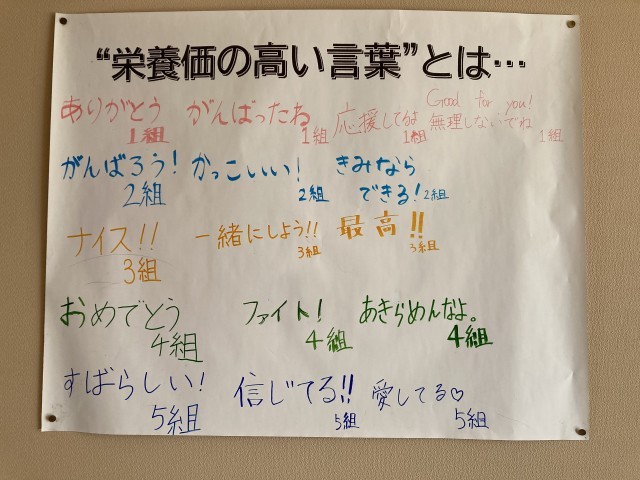 “栄養価の高い言葉”とは…
ありがとう がんばったね 応援してるよ Good for you! 無理しないでね
1組 1組 1組 1組
がんばろう! かっこいい! きみなら
できる! 2組
2組 2組
ナイス!! 一緒にしよう!! 最高!!
3組 3組 3組
おめでとう ファイト! あきらめんなよ。
4組 4組 4組
すばらしい! 信じてる!! 愛してる♡
5組 5組 5組